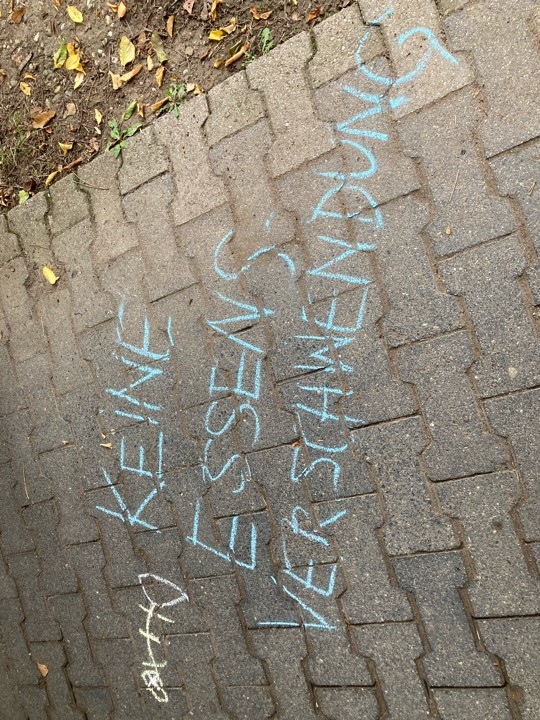 KEINE
ESSENS-
VERSCHWENDUNG